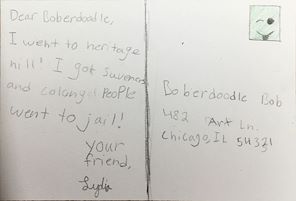 Dear Boberdoodle,
I went to heritage
hill! I got suveners
and colonel People
went to jail!
your
friend,
Lydia
Boberdoodle Bob
482 Art Ln.
Chicago, IL 54321